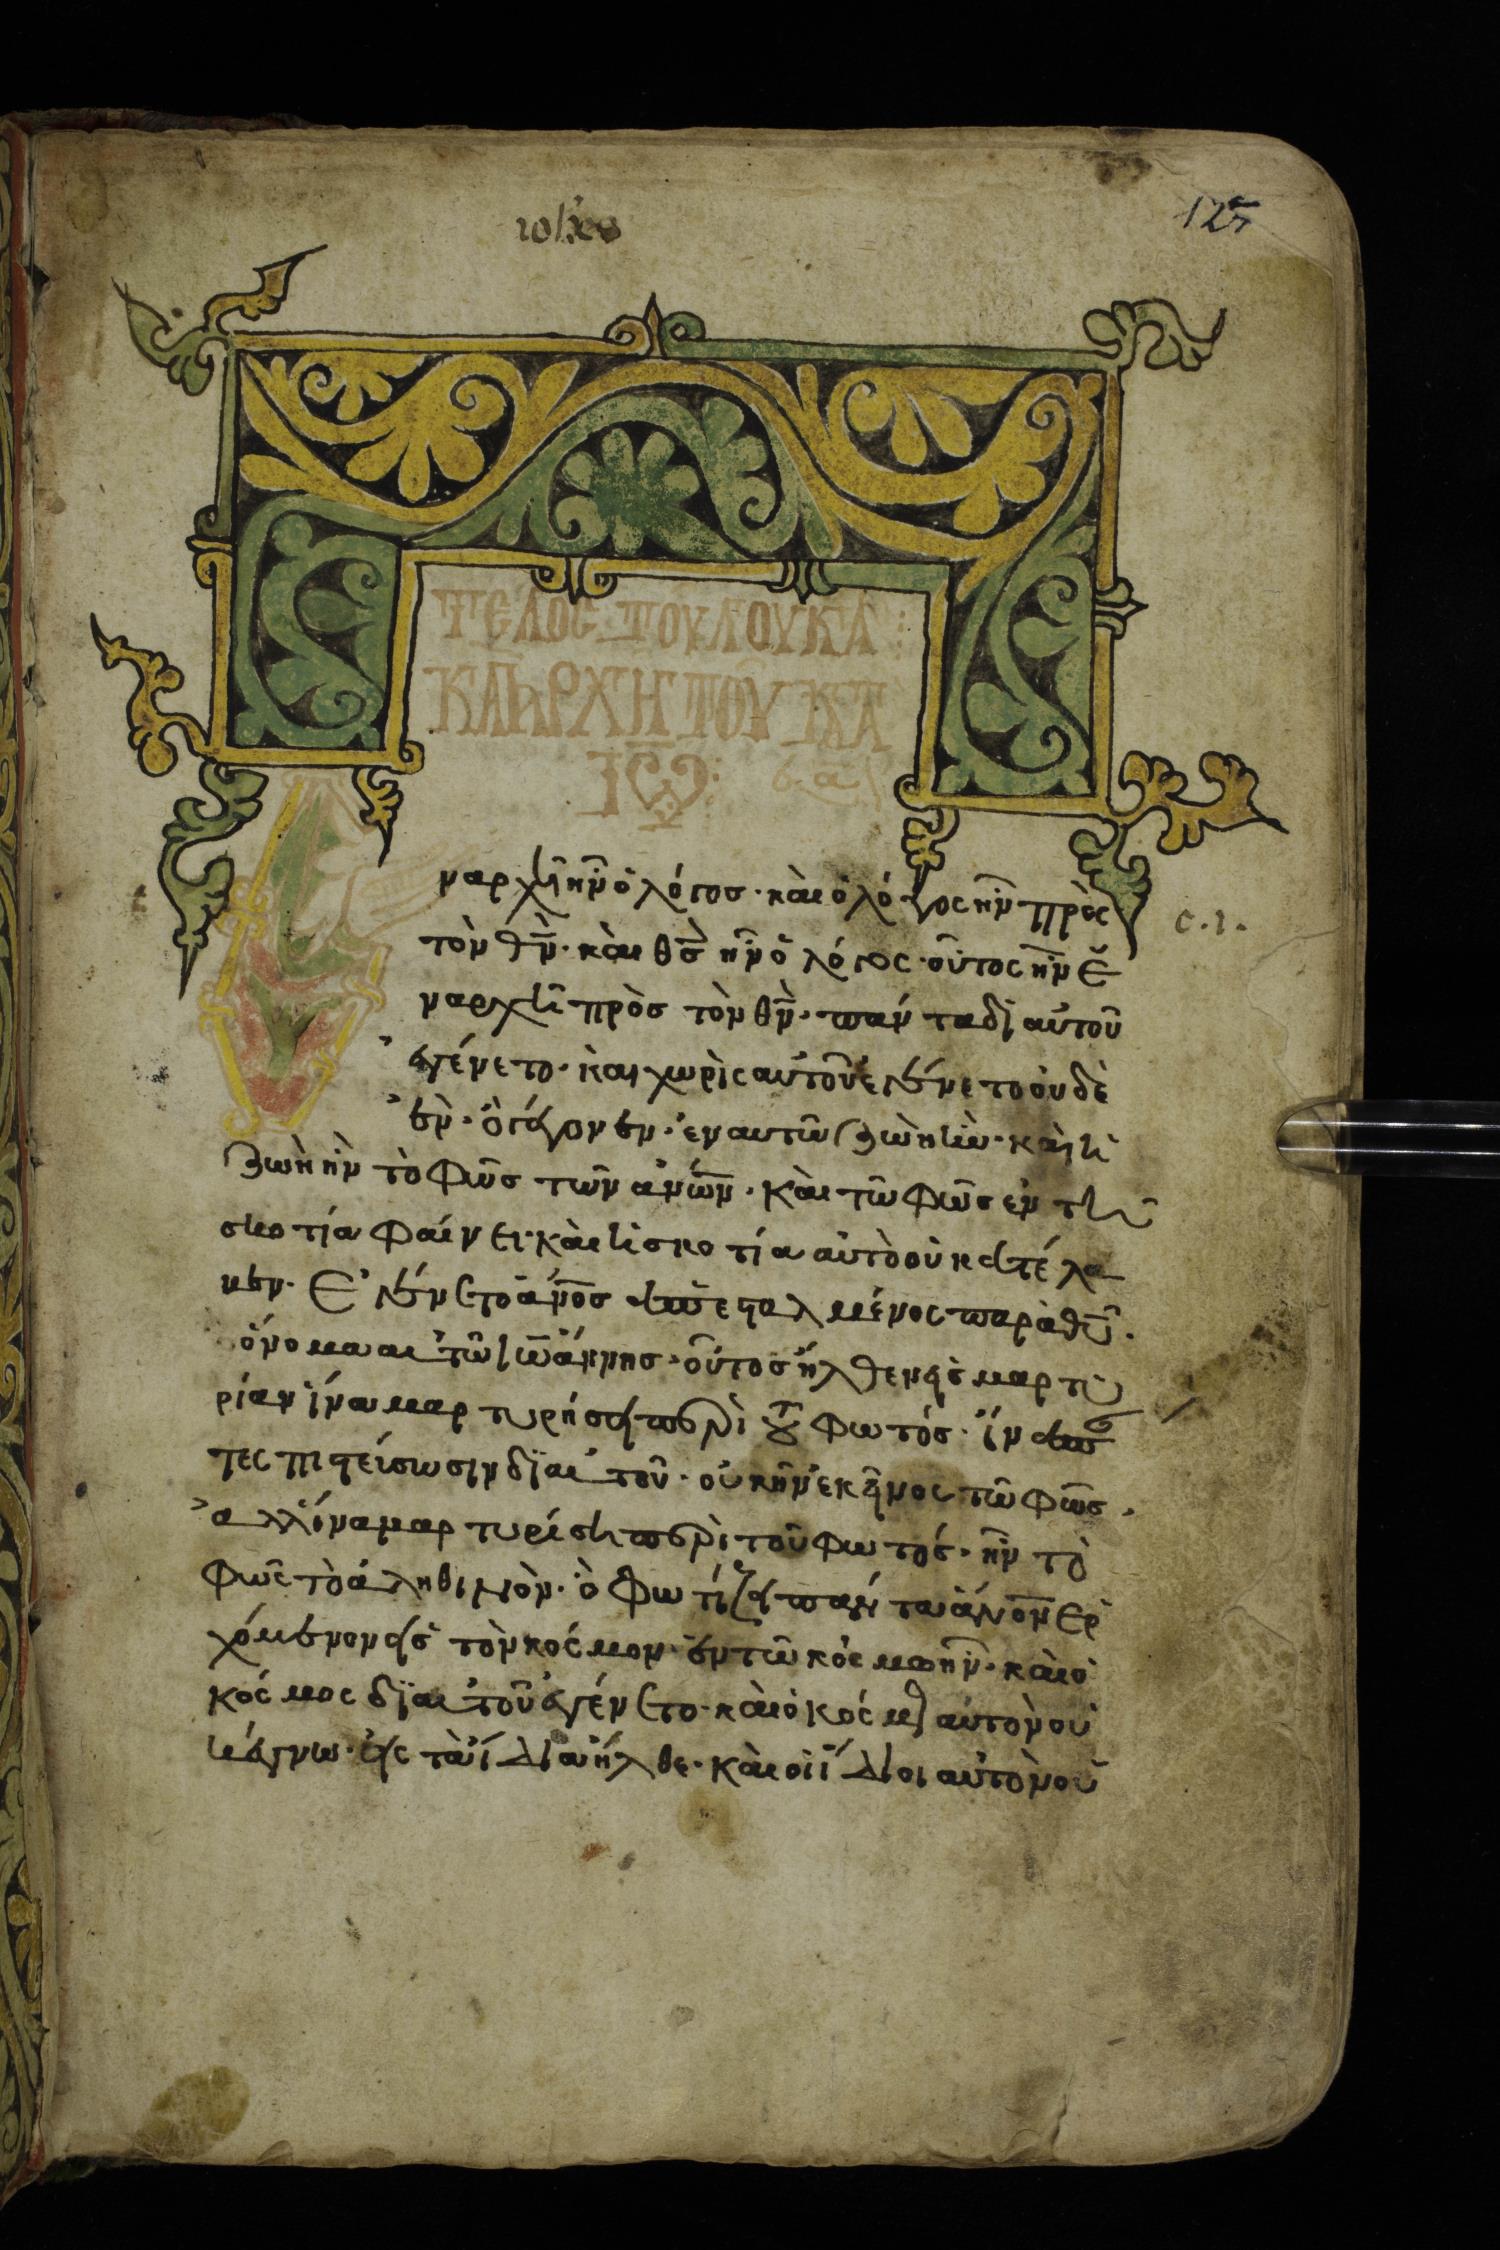 125
ΤΕΛΟΣ ΤΟΥ ΛΟΥΚΑ:
ΚΑΙ ΑΡΧΗ ΤΟΥ ΚΑΤΑ
ΙΩ:
ναρχῆ ἦν ὁ λόγοσ· καὶ ὁ λόγος ἦν πρὸς
c.1.
τὸν θ̅ν̅· καὶ θ̅σ̅ ἦν ὁ λόγος· οὗτος ἦν ἐ
ναρχῆ πρὸσ τὸν θ̅ν̅· πάν τα δι αὐτοῦ
ἐγένετο· καὶ χωρὶς αὐτοῦ ἐγένετο οὐδὲ
ἐν· ὃ γέγονεν· ἐν αυτῶ ζωὴ ἦν· καὶ ἡ
ζωὴ ἦν τὸ φῶσ τῶν ἀν̅ω̅ν̅· καὶ τῶ φῶσ ἐν τῆ
σκοτία φαίνει· καὶ ἡ σκοτία αὐτὸ οὐ κατέλα
κεν· Ἐγένετο ἀν̅ο̅σ ἀπεσταλμένος παρὰ θ̅υ̅·
ὄνομα αυτῶ ἰω̅άννησ· οὗτοσ ἦλθεν εἰσ μαρτυ
ρίαν ἵνα μαρτυρήσει περὶ τοῦ φωτόσ· ἵνα παν
τες πιστείσωσιν δϊ αυτοῦ· οὐκ ἦν ἐκεῖνος τῶ φῶσ·
ἀλλ ἵνα μαρτυρίση περὶ τοῦ φωτόσ· ἦν τὸ
φῶς τὸ ἀληθινὸν· ὃ φωτίζει πάντα ἄν̅ο̅ν̅ ερ
χόμενον εἰσ τὸν κόσμον· ἐν τῶ κόσμω ἦν· καὶ ὁ
κόσμος δϊ αυτοῦ ἐγένετο· καὶ ὁ κόσμος αὐτὸν οὐ
κ ἔγνω· εἰς τὰ ἴδια ἦλθε· καὶ οἱ ἴδιοι αὐτὸν οὐ